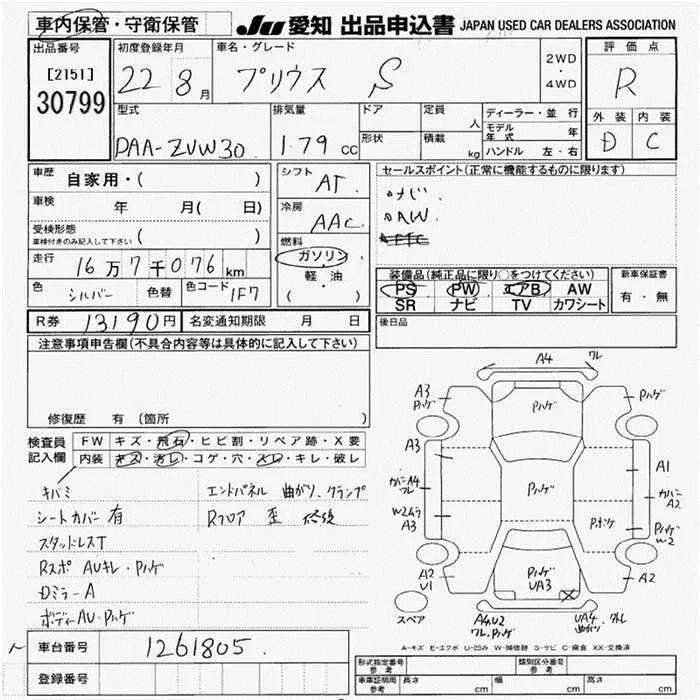 車内保管・守衛保管 JU 愛知 出品申込書 JAPAN USED CAR DEALERS ASSOCIATION
出品番号 初度登録年月 車名・グレード 2WD・4WD 評価点
[2151] 30799 22 8月 プリウス S R
型式 排気量 ドア 定員 人 ディーラー・並行 外装 内装
DAA-ZVW30 1.79 cc 形状 積載 kg モデル年式 年 D C
ハンドル 左・右
車歴 自家用・( ) シフト AT セールスポイント(正常に機能するものに限ります)
車検 年 月( 日) 冷房 AAC ナビ
受検形態 車検付きのみ記入して下さい ( ) AW
走行 16万7千076km 燃料 ガソリン・軽油 ( ・ )
色 シルバー 色替 色コード 1F7
装備品(純正品に限り○をつけてください) 新車保証書
PS PW エアB AW 有・無
SR ナビ TV カワシート
R券 13190円 名変通知期限 月 日 後日品
注意事項申告欄(不具合内容等は具体的に記入して下さい)
修復歴 有 (箇所 )
検査員記入欄 FW キズ・飛石・ヒビ割・リペア跡・X要
内装 キズ・汚レ・コゲ・穴・スレ・キレ・破レ
キバミ エンドパネル 曲がり、クランプ
シートカバー有 Rフロア 歪 修復
スタッドレスT
Rスポ AUキレ・Pハゲ
Dミラ-A
ボディーAU・Pハゲ
A4 ワレ
A3 Pハゲ Pハゲ Pハゲ
A3 A1
カバーA4 ワレ Pハゲ カバーA2
A3 Pハゲ W2
A2 U1 Pハゲ UA3 A2
スペア A4U2 ワレ,Pハゲ UA4 曲がり
A-キズ E-エクボ U-凹み W-補修跡 S-サビ C-腐食 XX-交換済
車台番号 1261805
登録番号
形式指定番号 参考 類別区分番号 参考
車庫証明用 参考 長さ cm 幅 cm 高さ cm